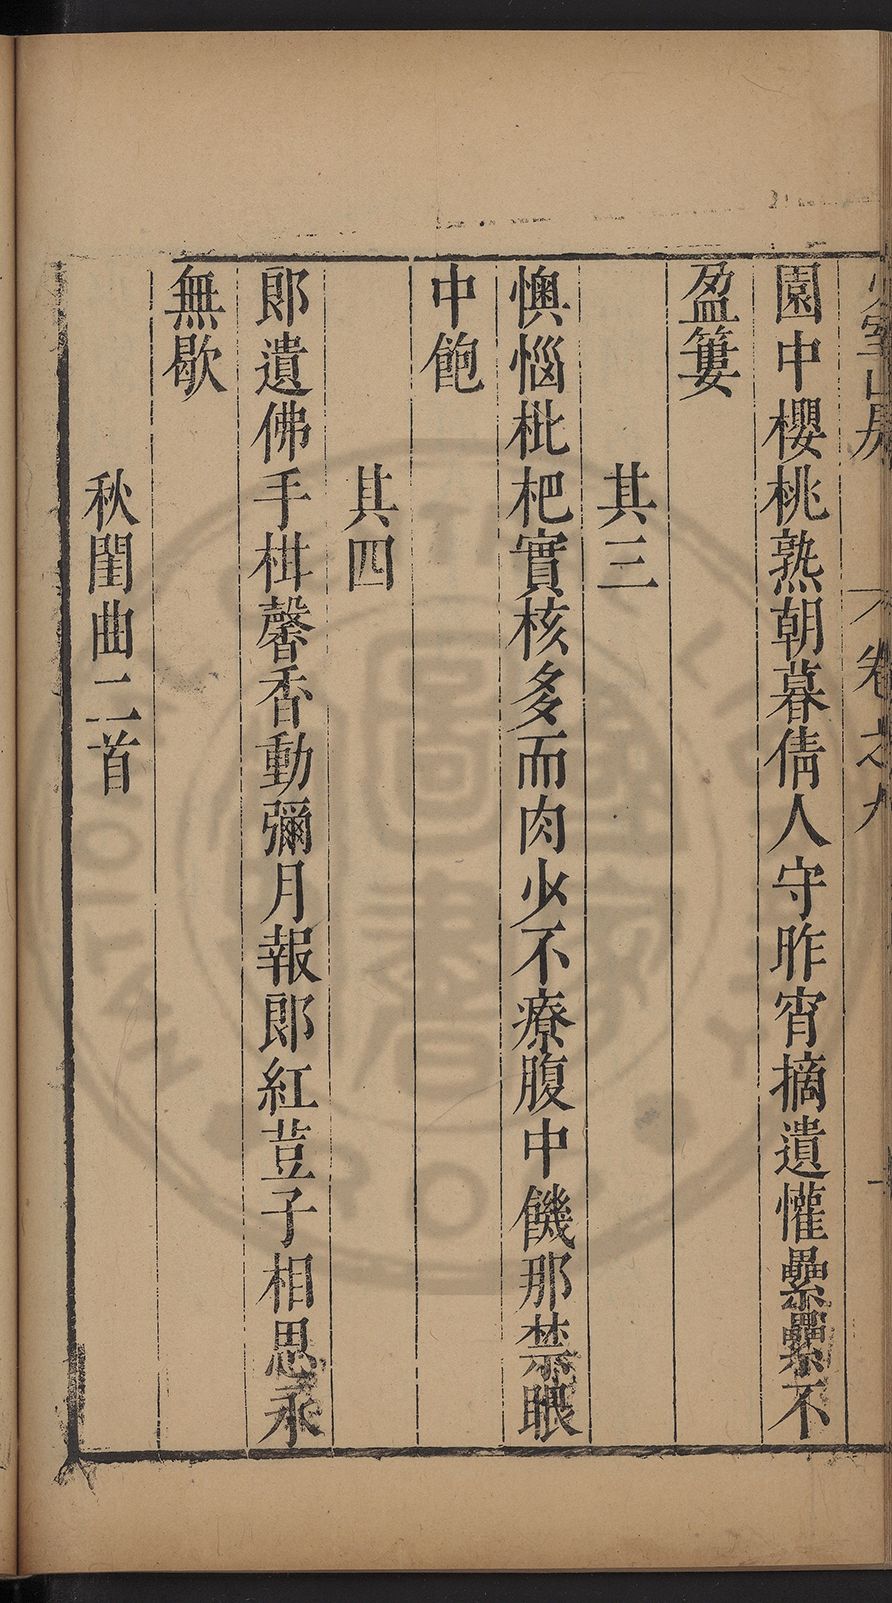 少室山房 卷之九 一
園中櫻桃熟朝暮倩人守昨宵摘遺懽纍纍不
盈簍
其三
懊惱枇杷實核多而肉少不療腹中饑那禁眼
中飽
其四
郎遺佛手柑馨香動彌月報郎紅荳子相思永
無歇
秋閨曲二首